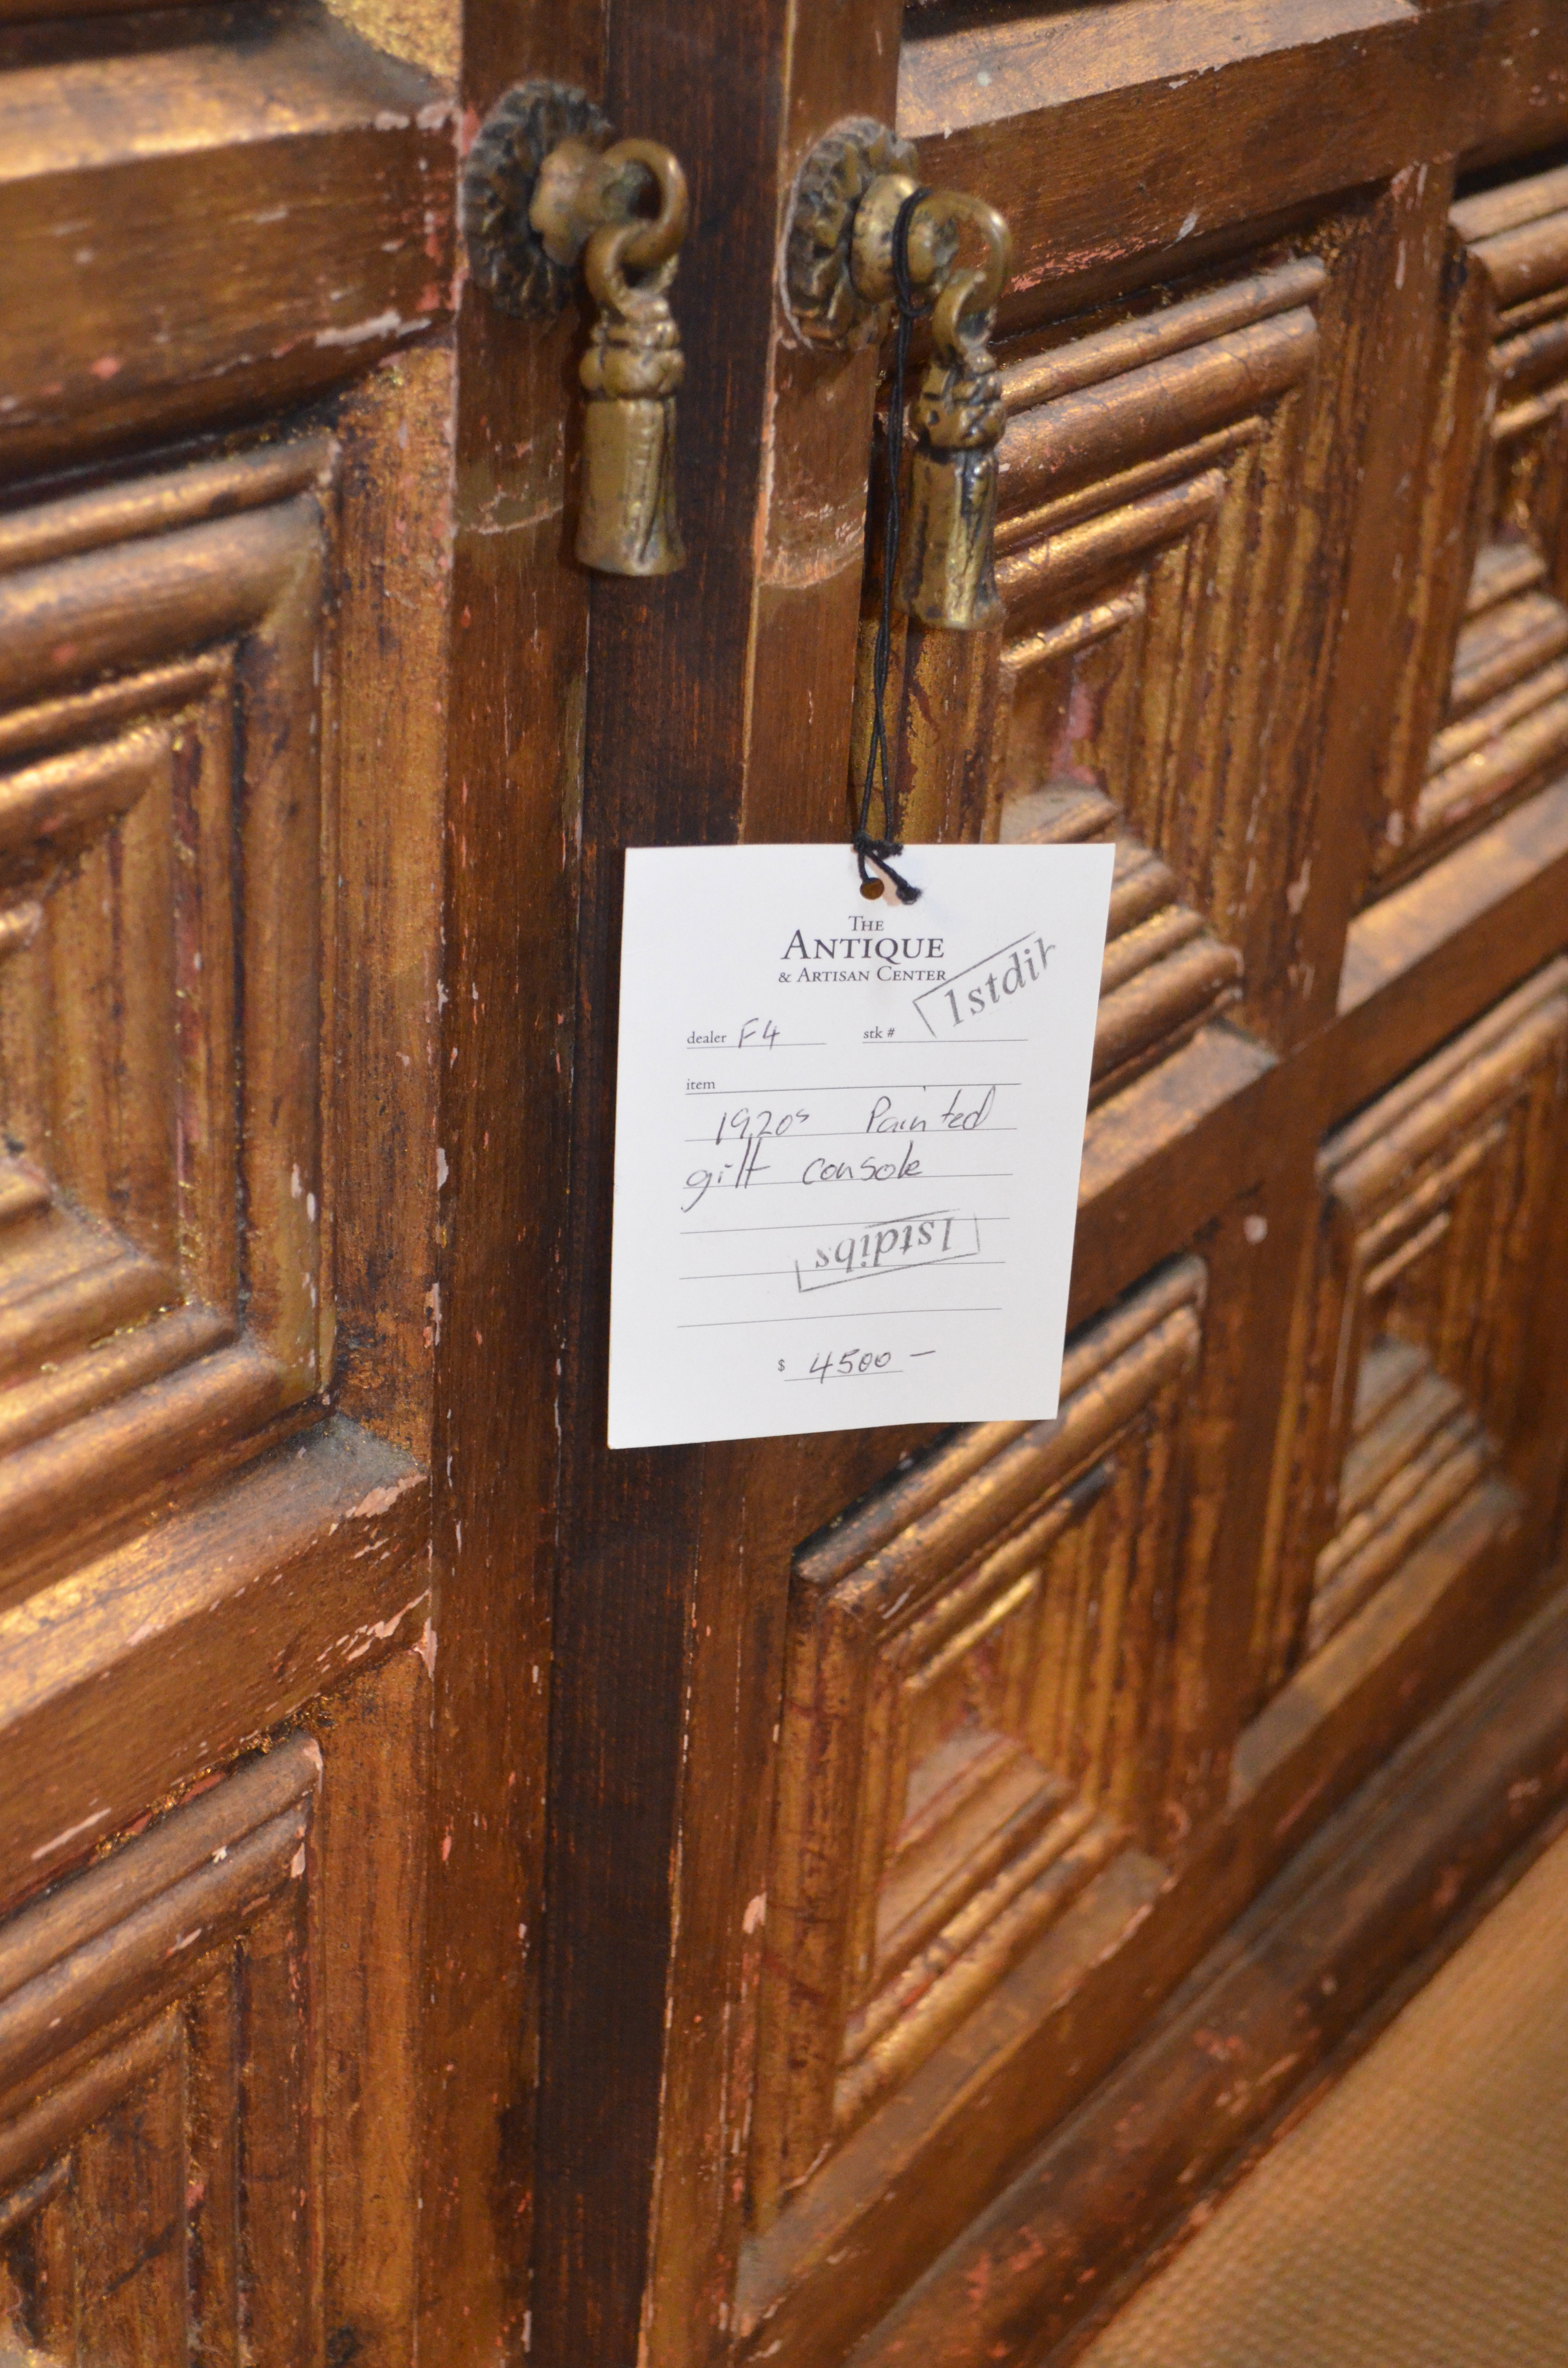 THE
ANTIQUE
& ARTISAN CENTER
1stdib
dealer F4 stk #
item
1920s Painted
gilt console
1stdibs
$ 4500 —